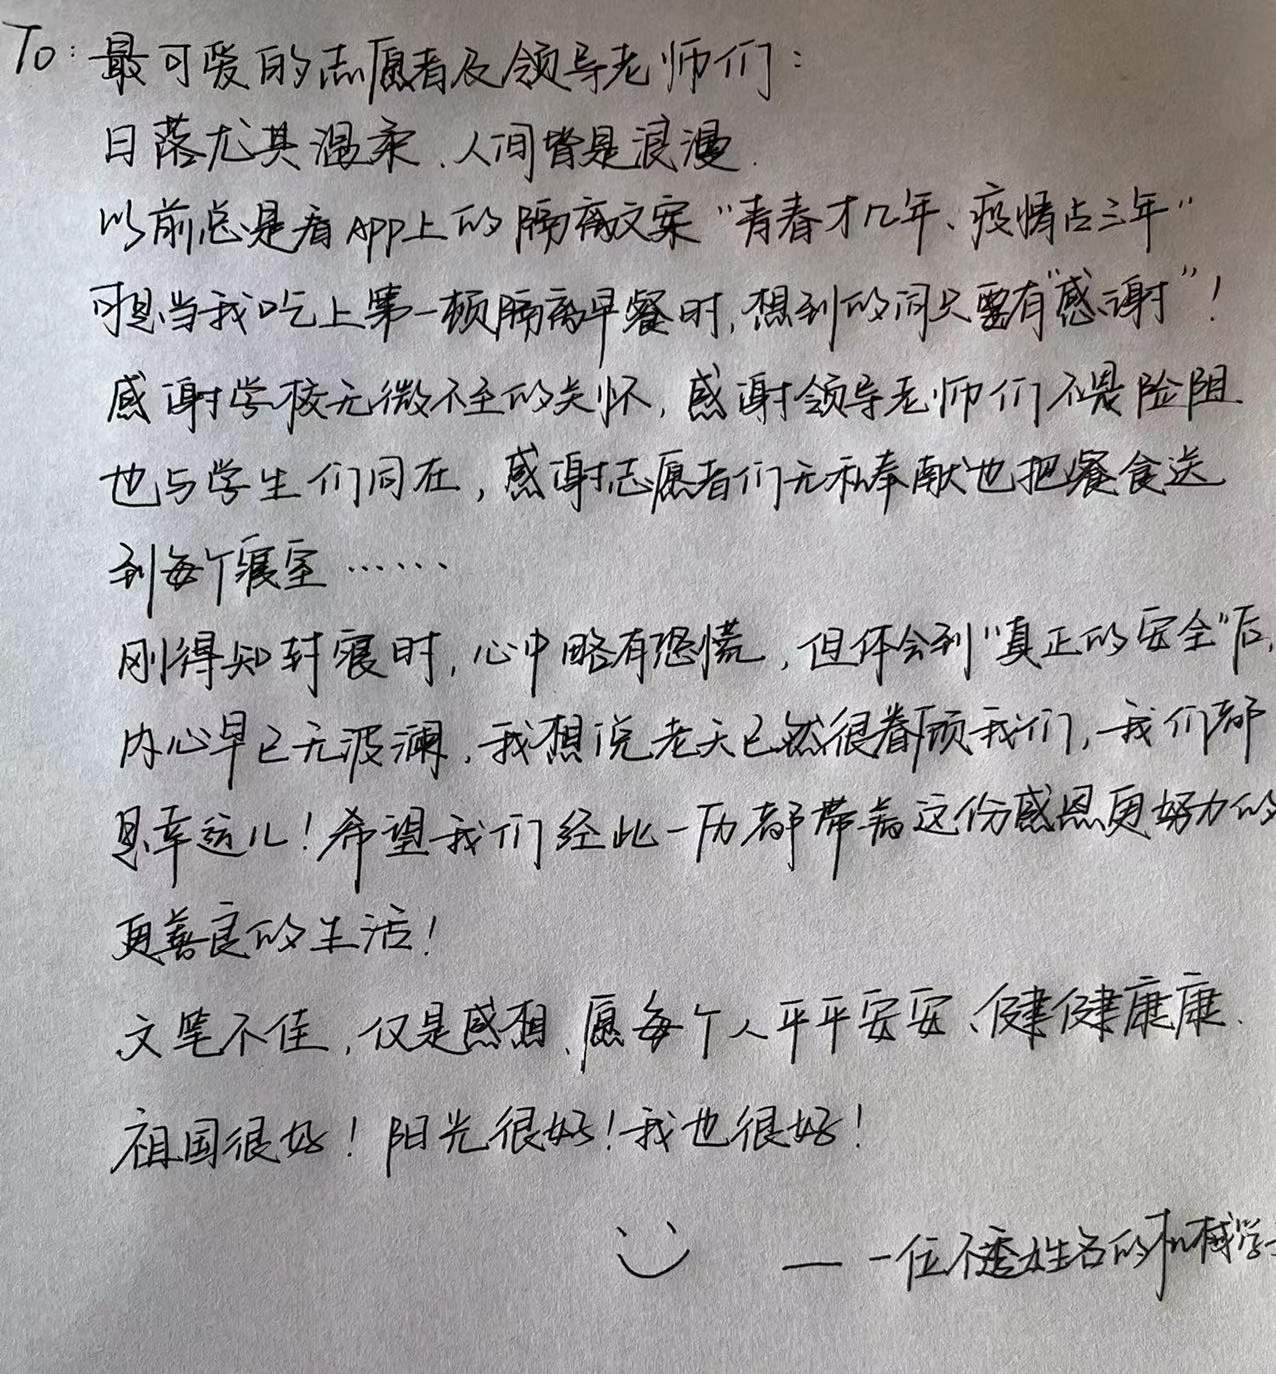 To: 最可爱的志愿者及领导老师们:
日落尤其温柔、人间皆是浪漫.
以前总是看APP上的隔离文案“青春才几年、疫情占三年”
可是当我吃上第一顿隔离早餐时,想到的词只要有“感谢”!
感谢学校无微不至的关怀,感谢领导老师们不畏险阻
也与学生们同在,感谢志愿者们无私奉献也把餐食送
到每个寝室……
刚得知封寝时,心中略有恐慌,但体会到“真正的安全”后,
内心早已无波澜,我想说老天已然很眷顾我们,我们都
是幸运儿!希望我们经此一历都带着这份感恩更努力的
更善良的生活!
文笔不佳,仅是感想、愿每个人平平安安、健健康康.
祖国很好!阳光很好!我也很好!
——一位不透姓名的机械学